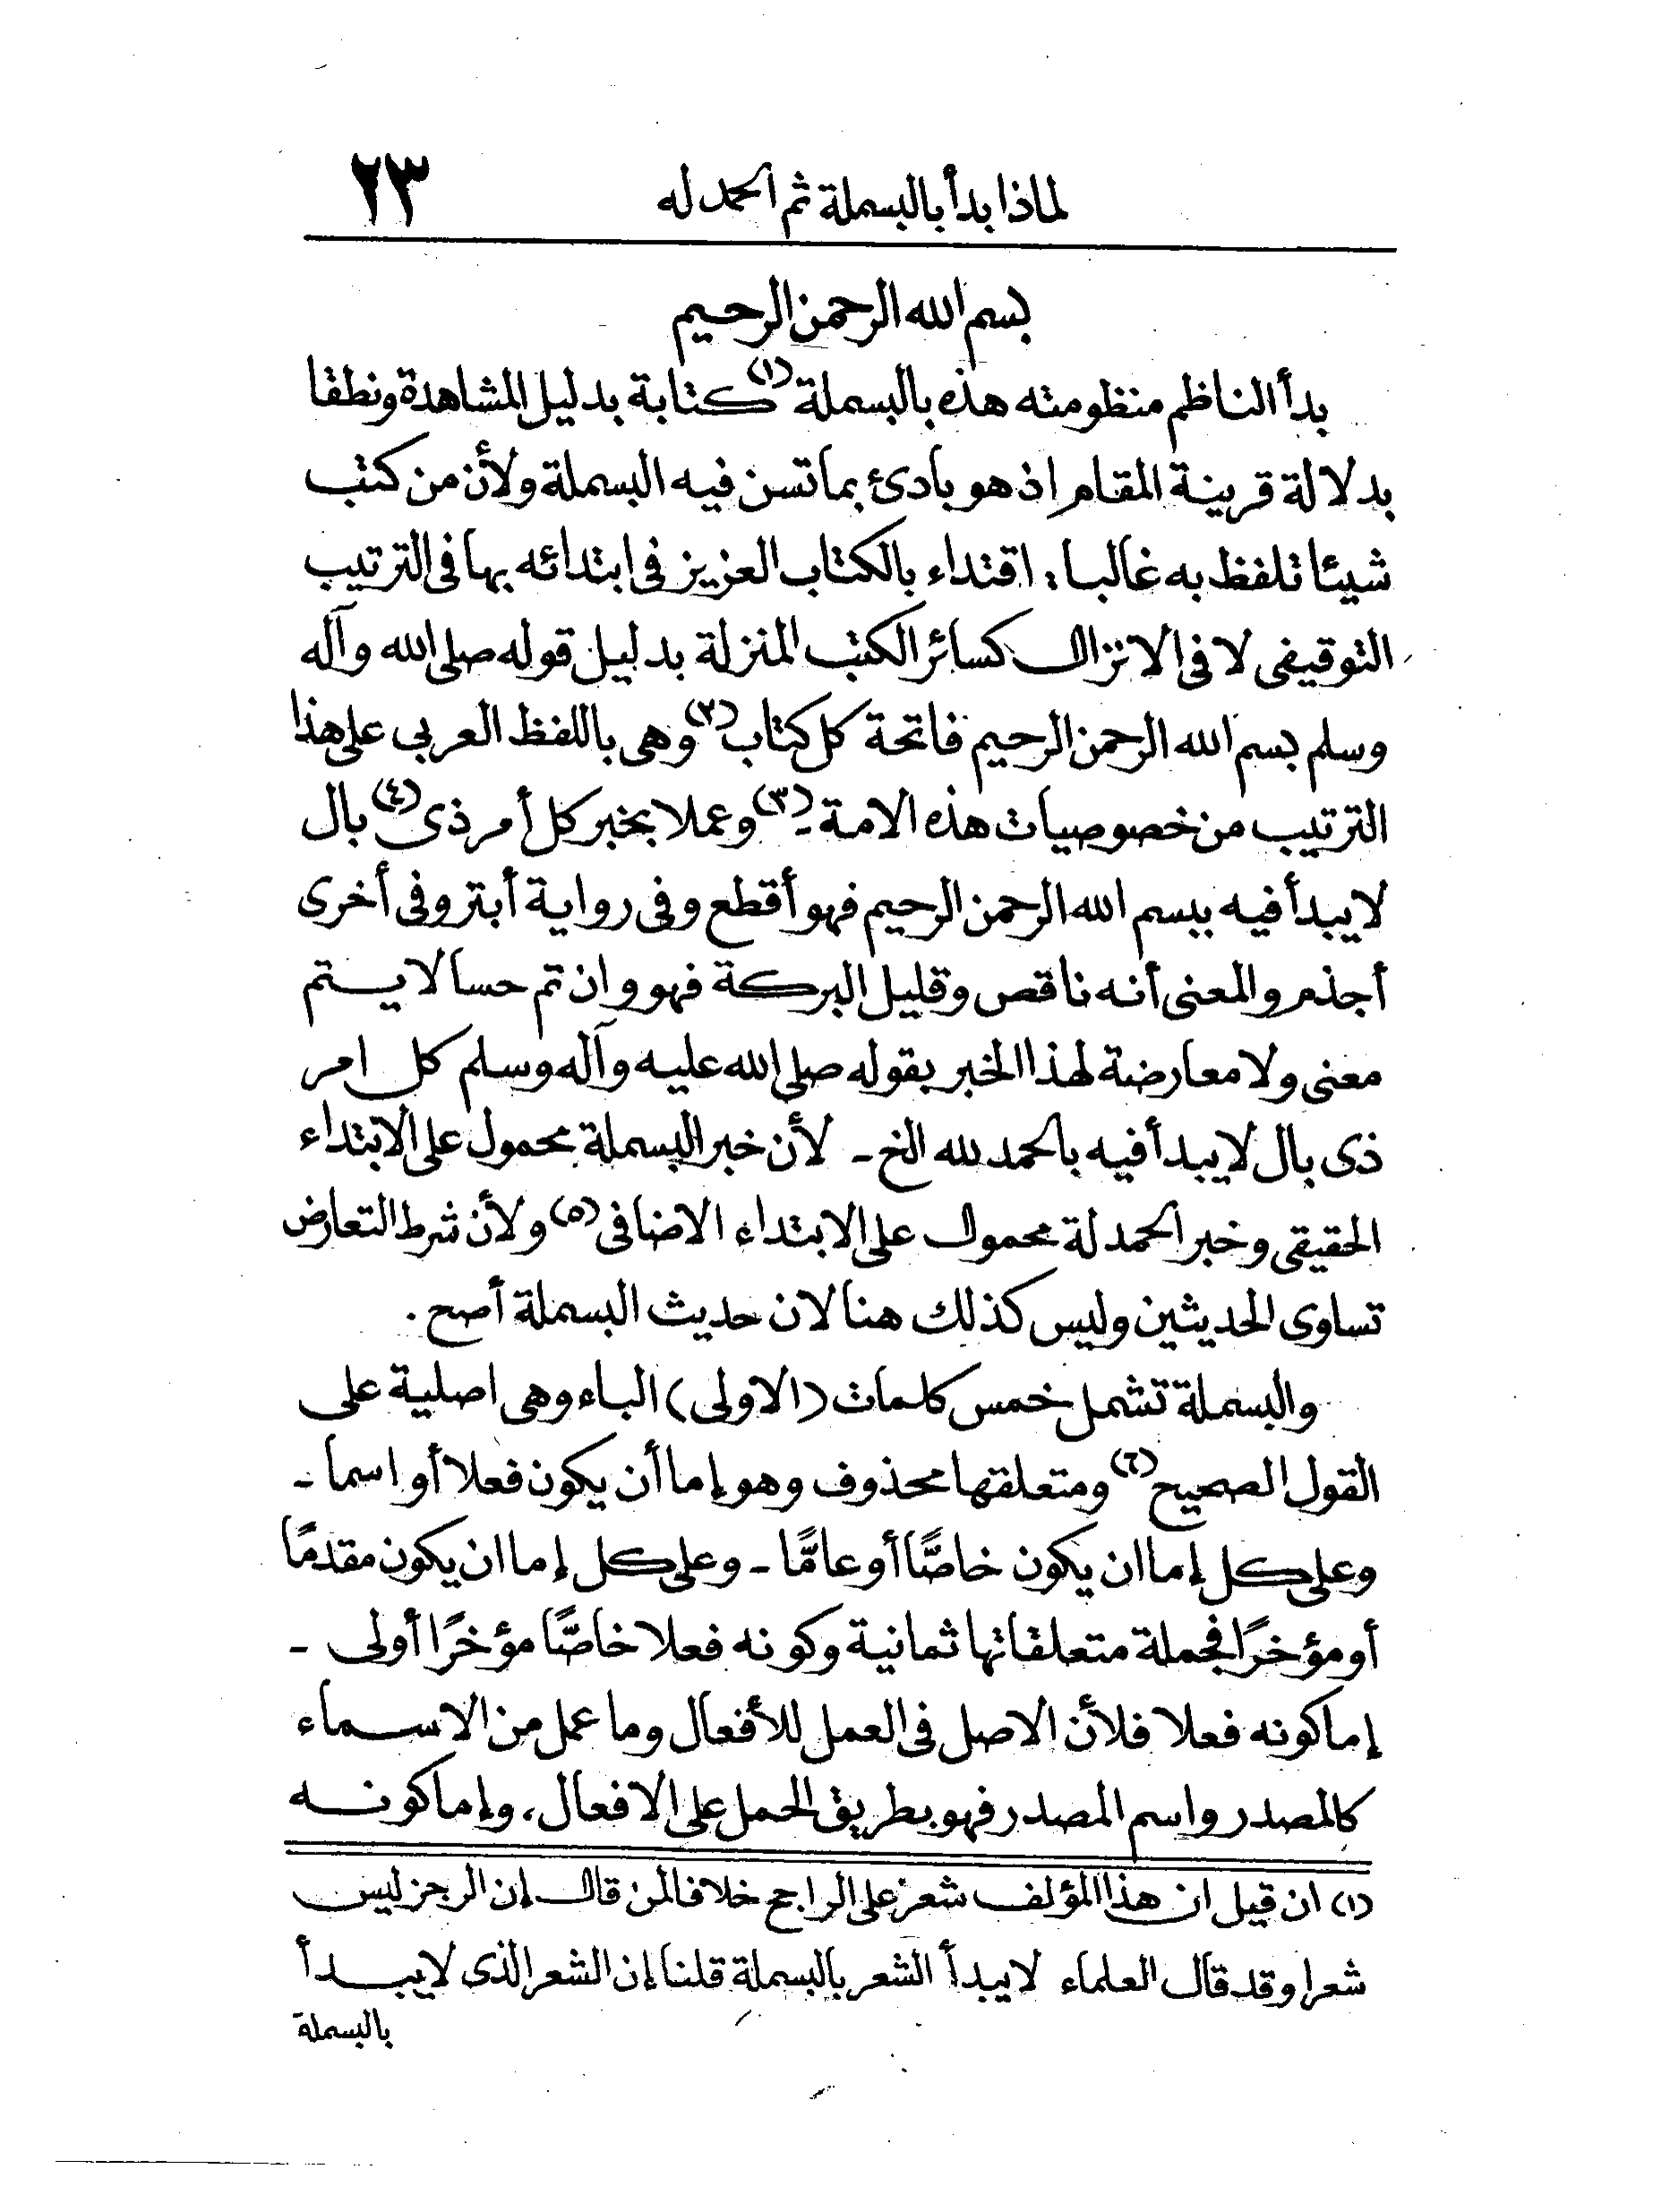 لماذا بدأ بالبسملة ثم الحمد له ٢٣
بسم الله الرحمن الرحيم
بدأ الناظم منظومته هذه بالبسملة (١) كتابة بدليل المشاهدة ونطقا
بدلالة قرينة المقام اذ هو بادئ بما تسن فيه البسملة ولأن من كتب
شيئا تلفظ به غالبا، اقتداء بالكتاب العزيز فى ابتدائه بها فى الترتيب
التوقيفى لا فى الانزال كسائر الكتب المنزلة بدليل قوله صلى الله وآله
وسلم بسم الله الرحمن الرحيم فاتحة كل كتاب (٢) وهى باللفظ العربي على هذا
الترتيب من خصوصيات هذه الامة ـ (٣) وعملا بخبر كل أمر ذى (٤) بال
لا يبدأ فيه ببسم الله الرحمن الرحيم فهو أقطع وفى رواية أبتر وفى أخرى
أجذم والمعنى أنه ناقص وقليل البركة فهو وان تم حسا لا يستم
معنى ولا معارضة لهذا الخبر بقوله صلى الله عليه وآله وسلم كل امر
ذى بال لا يبدأ فيه بالحمد لله الخ ـ لأن خبر البسملة محمول على الابتداء
الحقيقى وخبر الحمد لة محمول على الابتداء الاضافى (٥) ولأن شرط التعارض
تساوى الحديثين وليس كذلك هنا لان حديث البسملة أصح .
والبسملة تشمل خمس كلمات (الاولى) الباء وهى اصلية على
القول الصحيح (٦) ومتعلقها محذوف وهو إما أن يكون فعلا أو اسما ـ
وعلى كل إما ان يكون خاصًّا أو عامًّا ـ وعلى كل إما ان يكون مقدمًا
أو مؤخرًا فجملة متعلقاتها ثمانية وكونه فعلا خاصًّا مؤخرًا أولى ـ
إما كونه فعلا فلأن الاصل فى العمل للأفعال وما عمل من الاسماء
كالمصدر واسم المصدر فهو بطريق الحمل على الافعال، وإما كونه
(١) ان قيل ان هذا المؤلف شعر على الراجح خلافا لمن قال إن الرجز ليس
شعرا وقد قال العلماء لا يبدأ الشعر بالبسملة قلنا إن الشعر الذى لا يبدأ
بالبسملة